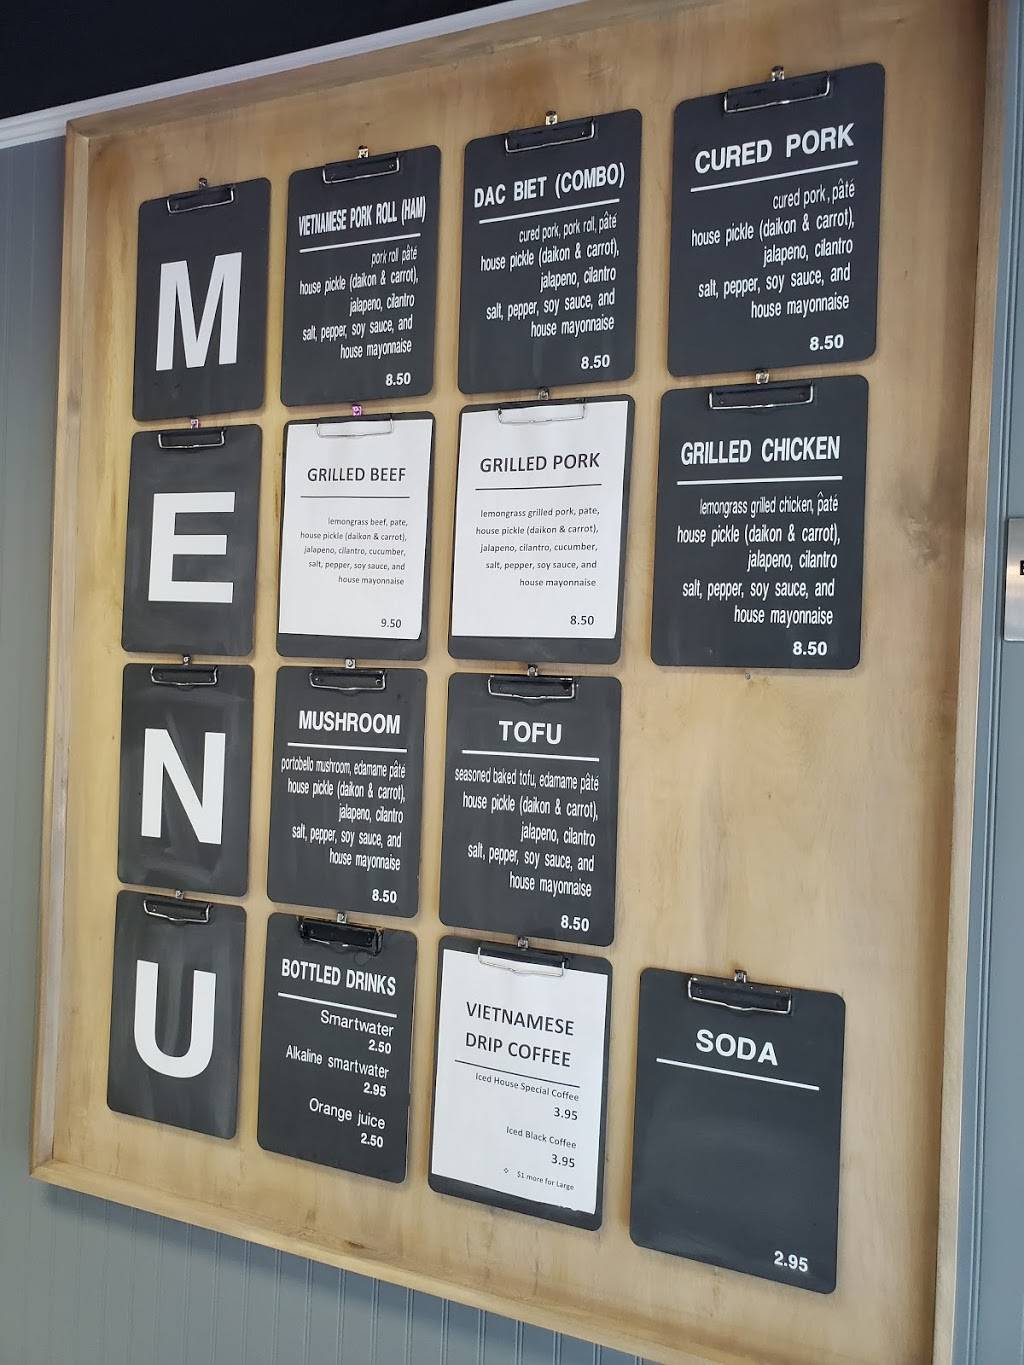 M
VIETNAMESE PORK ROLL (HAM)
pork roll pâté
house pickle (daikon & carrot),
jalapeno, cilantro
salt, pepper, soy sauce, and
house mayonnaise
8.50
DAC BIET (COMBO)
cured pork, pork roll, pâté
house pickle (daikon & carrot),
jalapeno, cilantro
salt, pepper, soy sauce, and
house mayonnaise
8.50
CURED PORK
cured pork, pâté
house pickle (daikon & carrot),
jalapeno, cilantro
salt, pepper, soy sauce, and
house mayonnaise
8.50
E
GRILLED BEEF
lemongrass beef, pate,
house pickle (daikon & carrot),
jalapeno, cilantro, cucumber,
salt, pepper, soy sauce, and
house mayonnaise
9.50
GRILLED PORK
lemongrass grilled pork, pate,
house pickle (daikon & carrot),
jalapeno, cilantro, cucumber,
salt, pepper, soy sauce, and
house mayonnaise
8.50
GRILLED CHICKEN
lemongrass grilled chicken, pâté
house pickle (daikon & carrot),
jalapeno, cilantro
salt, pepper, soy sauce, and
house mayonnaise
8.50
N
MUSHROOM
portobello mushroom, edamame pâté
house pickle (daikon & carrot),
jalapeno, cilantro
salt, pepper, soy sauce, and
house mayonnaise
8.50
TOFU
seasoned baked tofu, edamame pâté
house pickle (daikon & carrot),
jalapeno, cilantro
salt, pepper, soy sauce, and
house mayonnaise
8.50
U
BOTTLED DRINKS
Smartwater
2.50
Alkaline smartwater
2.95
Orange juice
2.50
VIETNAMESE
DRIP COFFEE
Iced House Special Coffee
3.95
Iced Black Coffee
3.95
❖ $1 more for Large
SODA
2.95